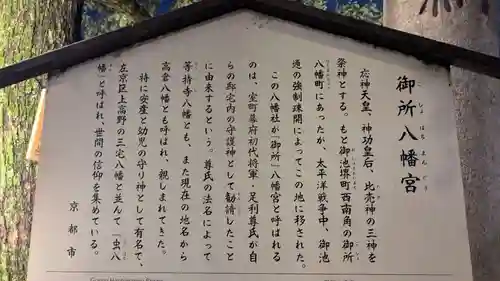 御所八幡宮
応神天皇、神功皇后、比売神の三神を
祭神とする。もと御池堺町西南角の御所
八幡町にあったが、太平洋戦争中、御池
通の強制疎開によってこの地に移された。
この八幡社が「御所」八幡宮と呼ばれる
のは、室町幕府初代将軍・足利尊氏が自
らの邸宅内の守護神として勧請したこと
に由来するという。尊氏の法名によって
等持寺八幡とも、また現在の地名から
高倉八幡とも呼ばれ、親しまれてきた。
特に安産と幼児の守り神として有名で、
左京区上高野の三宅八幡と並んで、「虫八
幡」と呼ばれ、世間の信仰を集めている。
京都市